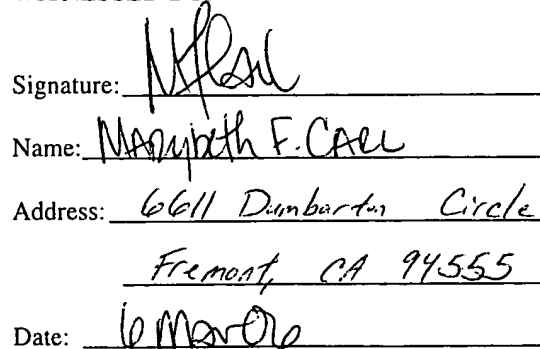 Signature:
Name: Marybeth F. Carl
Address: 6611 Dumbarton Circle
Fremont, CA 94555
Date: 6 Mar 06